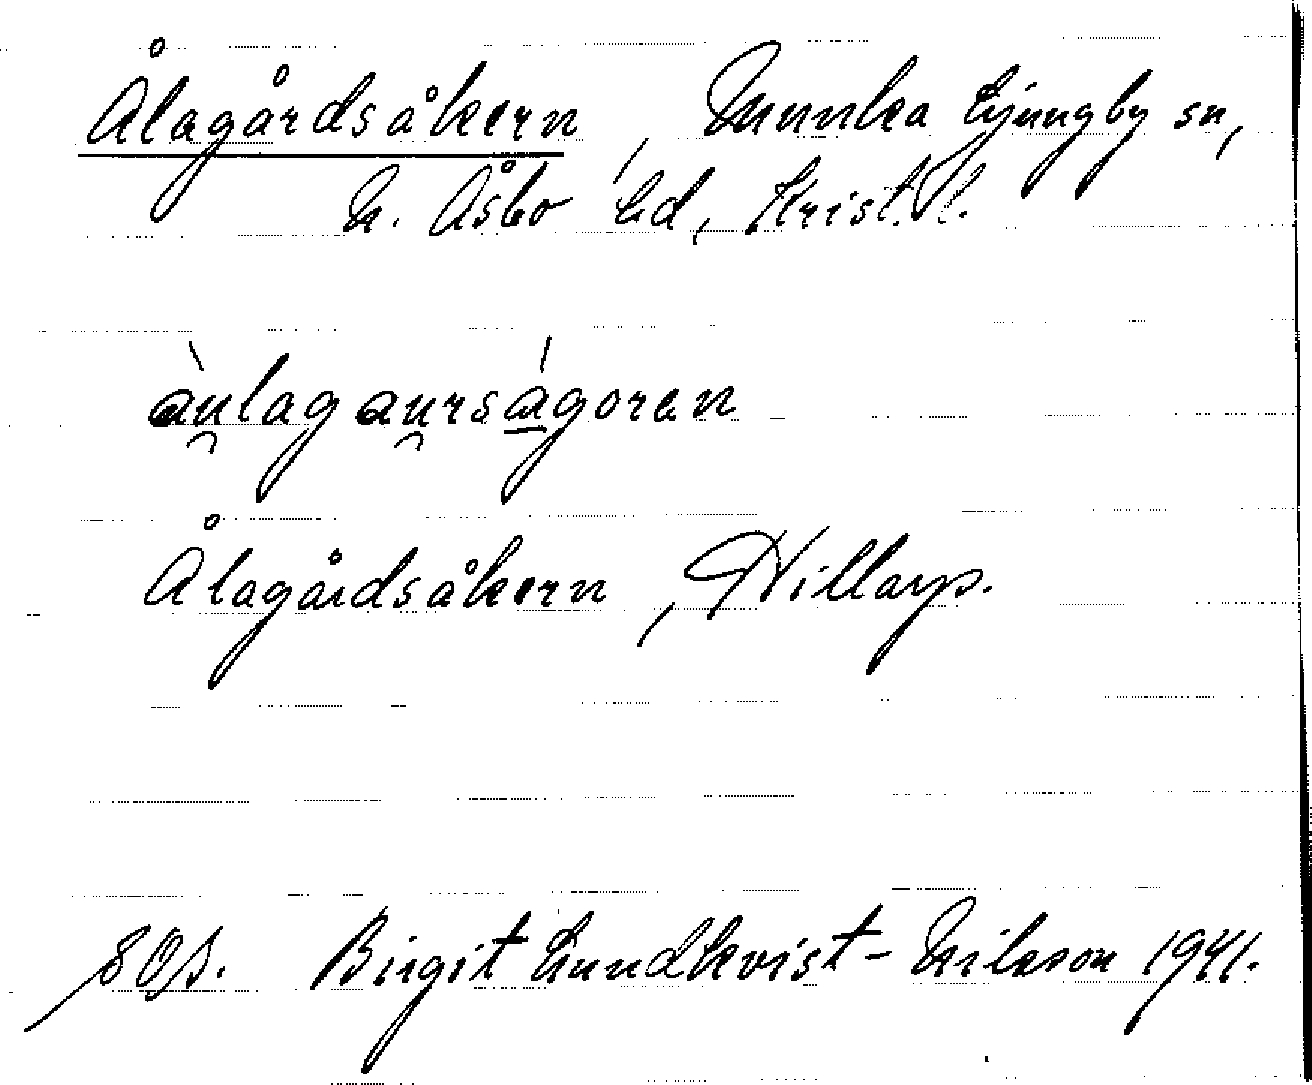 Ålagårdsåkern, Munka Ljungby sn,
N. Åsbo hd, Krist. l.
àu̯lagau̯rságoren
Ålagårdsåkern, Hillarp.
Birgit Lundkvist-Nilsson 1941.